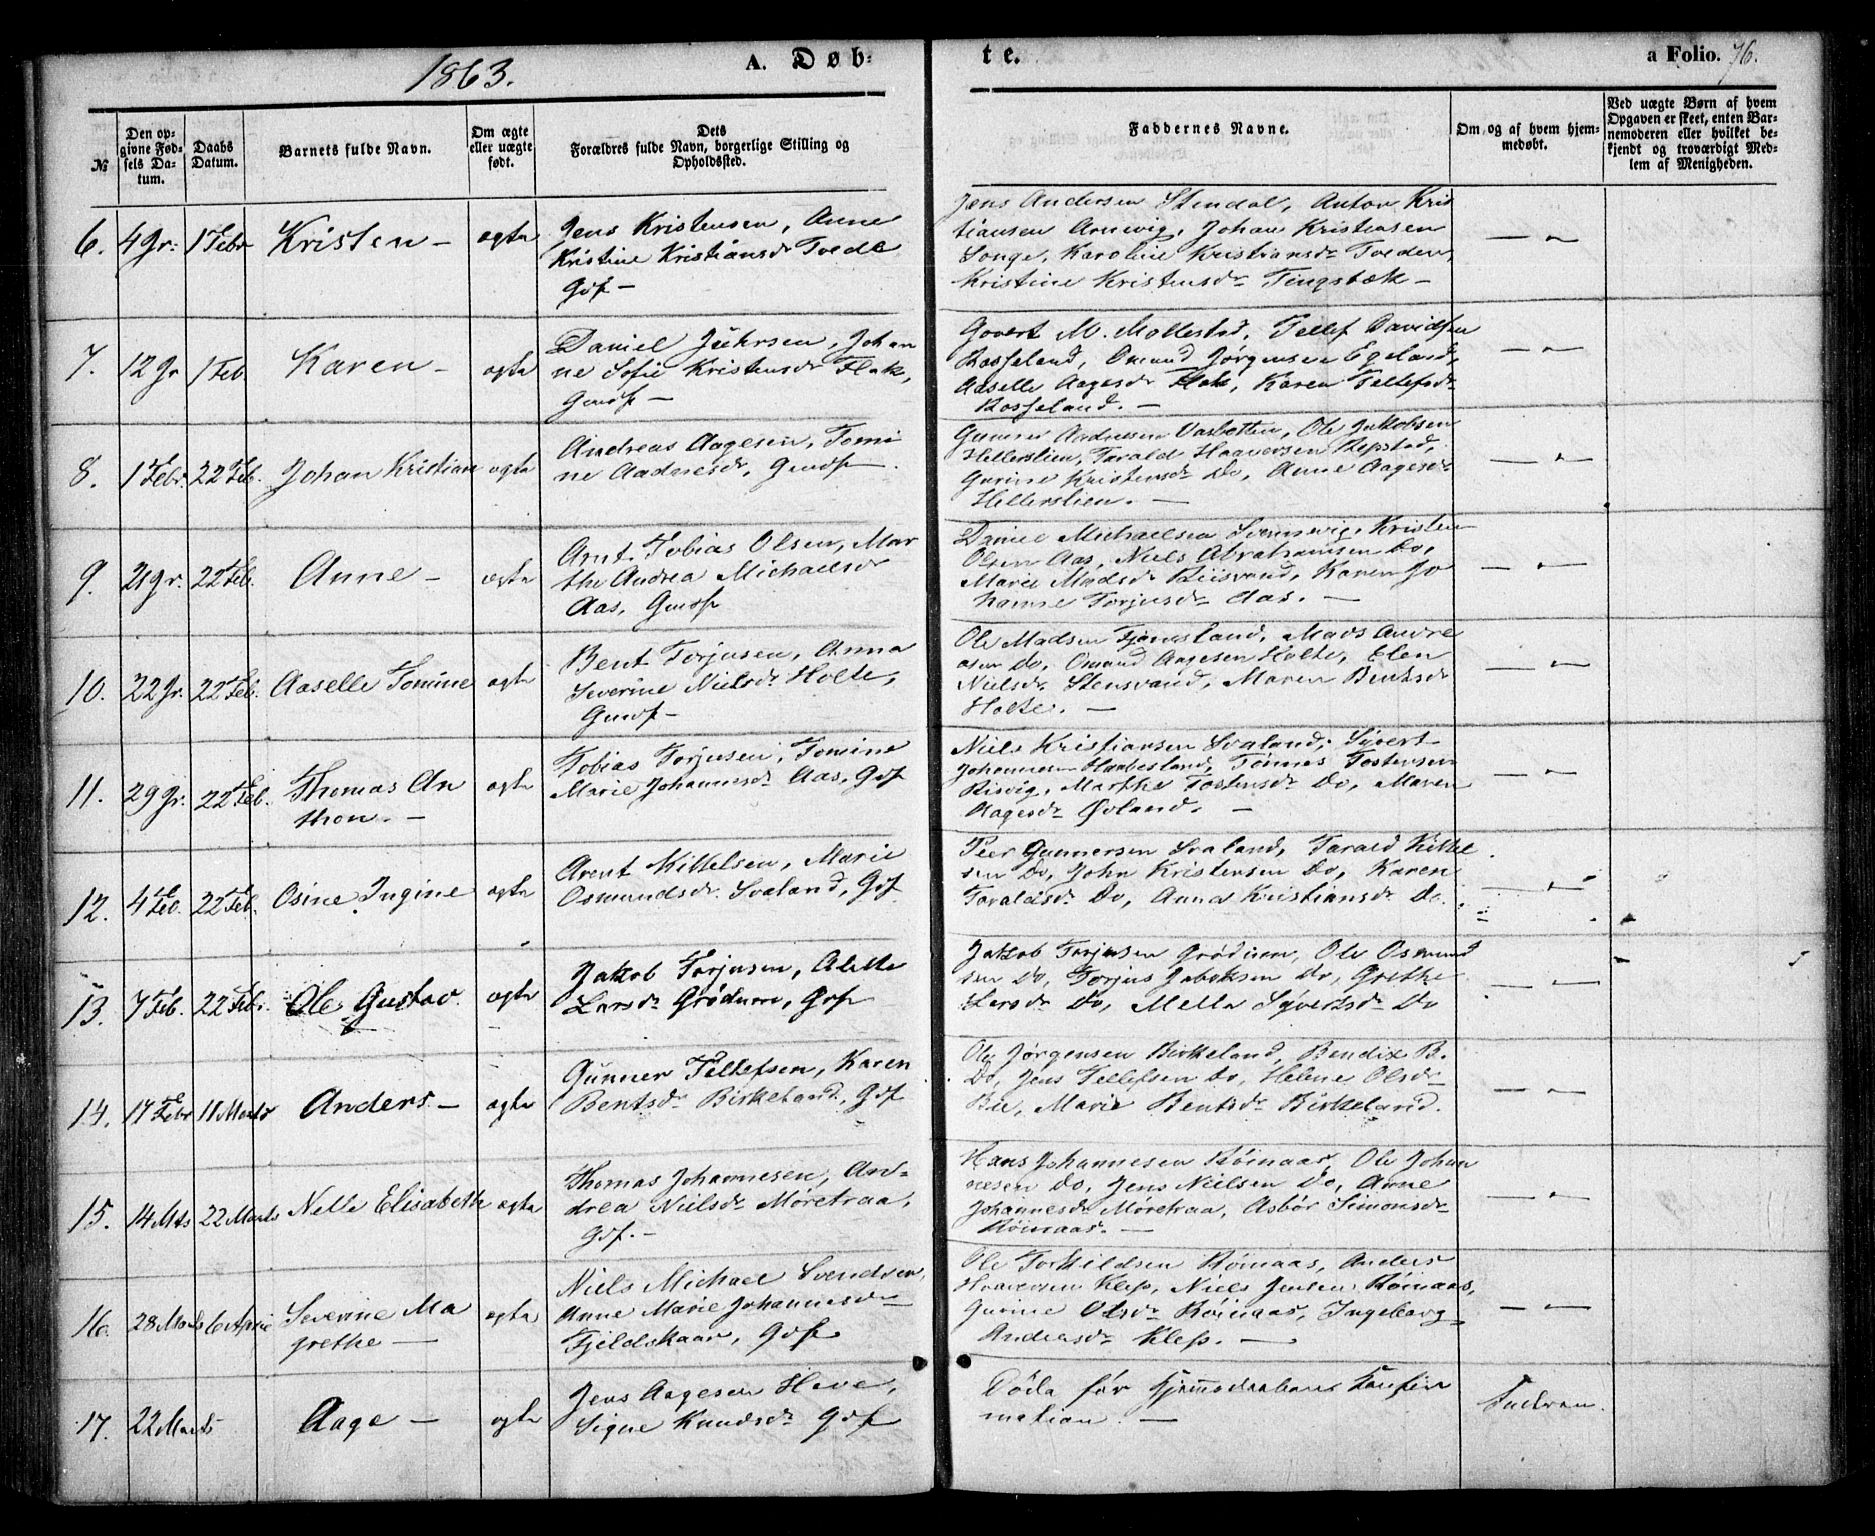 1863.
A. Døb-
te.
a Folio. 76.
№
Den op-
givne Fød-
sels Da-
tum.
Daabs
Datum.
Barnets fulde Navn.
Om ægte
eller uægte
født.
Dets
Forældres fulde Navn, borgerlige Stilling og
Opholdssted.
Faddernes Navne.
Om og af hvem hjem-
medøbt.
Ved uægte Børn af hvem
Opgaven er skeet, enten Bar-
nemoderen eller hvilket be-
kjendt og troværdigt Med-
lem af Menigheden.
6. 4 Jr: 1 Febr Kristen – ægte
Jens Kristensen, Anne
Kristine Kristiansdr Tvede
Gdf –
Jens Andersen Stendal, Anton Kris
tiansen Arnevig, Johan Kristensen
Songe, Karoline Kristiansdr Tveden,
Kristine Kristensdr Tingsbæk –
7. 12 Jr 1 Feb. Karen – ægte
Daniel Jührsen, Johan
ne Sofie Kristensdr Flak,
Gmdf –
Govert M. Mollestad, Tellef Davidsen
Rosseland, Omund Jörgensen Egeland,
Aaselle Aagesdr Flak, Karen Tellefsdr
Rosseland. –
8. 1 Febr. 22 Feb. Johan Kristian ægte
Andreas Aagesen, Tomi
ne Aadnesdr, Gmdf .
Gunner Aadnesen Vasbotten, Ole Jakobsen
Hellerslien, Torald Haaversen Repstad,
Gurine Kristensdr Do, Anne Aagesdr
Hellerslien. –
9. 21 Jr. 22 Feb. Anne – ægte
Arnt Tobias Olsen, Mar
the Andrea Michaelsdr
Aas, Gmdf
Daniel Michaelsen Svennevig, Kristen
Olsen Aas, Niels Abrahamsen Do,
Marie Madsdr Beisvand, Karen Jo
hanne Torjusdr Aas. –
10. 22 Jr. 22 Feb. Aaselle Tomine ægte
Bent Torjusen, Anna
Severine Nielsdr Holte,
Gmdf –
Ole Madsen Tjomsland, Mads Andre
asen Do, Omund Aagesen Holte, Elen
Nielsdr Stensvand, Maren Bentsdr
Holte. –
11. 29 Jr. 22 Feb. Thomas An
thon. – ægte
Tobias Torjusen, Tomine
Marie Johannesdr Aas, Gdf
Niels Kristiansen Svaland, Syvert
Johannesen Haabesland, Tönnes Tostensen
Risvig, Marthe Tostensdr Do, Maren
Aagesdr Øvland. –
12. 4 Feb. 22 Feb. Osine Jngine ægte
Arent Kittelsen, Marie
Osmundsdr Svaland, Gdf
Peer Gunnersen Svaland, Tarald Kittel
sen Do, John Kristensen Do, Karen
Taraldsdr Do, Anna Kristiansdr Do.
13. 7 Feb. 22 Febr. Ole Gustav ægte
Jakob Torjusen, Alette
Larsdr Grödum, Gdf
Jakob Torjusen Grödum, Ole Osmund
sen Do, Torjus Jaboksen Do, Grethe
Larsdr Do, Mella Syvertsdr Do
14. 17 Febr 11 Marts Anders – ægte
Gunner Tellefsen, Karen
Bentsdr Birkeland, Gdf
Ole Jørgensen Birkeland, Bendix B.
Do, Jens Tellefsen Do, Helene Olsdr
Bie, Marie Bentsdr Birkeland.
15. 14 Mts 22 Marts Nelle Elisabeth ægte
Thomas Johannesen, An-
drea Nielsdr Møretraa,
Gdf. –
Hans Johannesen Röinaas, Ole Johan
nesen Do, Jens Nielsen Do, Anne
Johannesdr Møretraa, Asbör Simonsdr
Röinaas. –
16. 28 Marts 6 April Severine Ma
grethe – ægte
Niels Michael Svendsen,
Anne Marie Johannesdr
Fjeldskaar, Gdf
Ole Torkildsen Röinaas, Anders
Haaversen Klep, Niels Jensen Röinaas,
Gurine Olsdr Röinaas, Ingeborg
Andersdr Klep. –
17. 22 Marts Aage – ægte
Jens Aagesen Heve,
Signe Knudsdr Gdf
Döda för Hjemmedaabens Konfir
mation. –
Faderen.